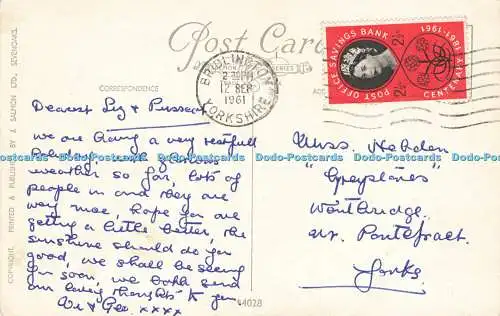 Post Card
CORRESPONDENCE
BRIDLINGTON
2-30PM
12 SEP
1961
YORKSHIRE
POST OFFICE SAVINGS BANK
1861-1961
CENTENARY
2½D
2½D
Dearest Liz &
we are having a very restfull
holiday with glorious
weather so far, lots of
people in and they are
very nice, hope you are
getting a little better, the
sunshine should do you
good, we shall be seeing
you soon, we both send
our loving thoughts to you
Vi & Geo. xxxx
Miss. Hebden
"Greystones"
Wentbridge.
nr. Pontefract.
Yorks.
COPYRIGHT. PRINTED & PUBLISHED BY J. SALMON LTD., SEVENOAKS.
44028
Dodo-Postcards Dodo-Postcards Dodo-Postcards Dodo-Postcards Dodo-Postcards Dodo-Postcards